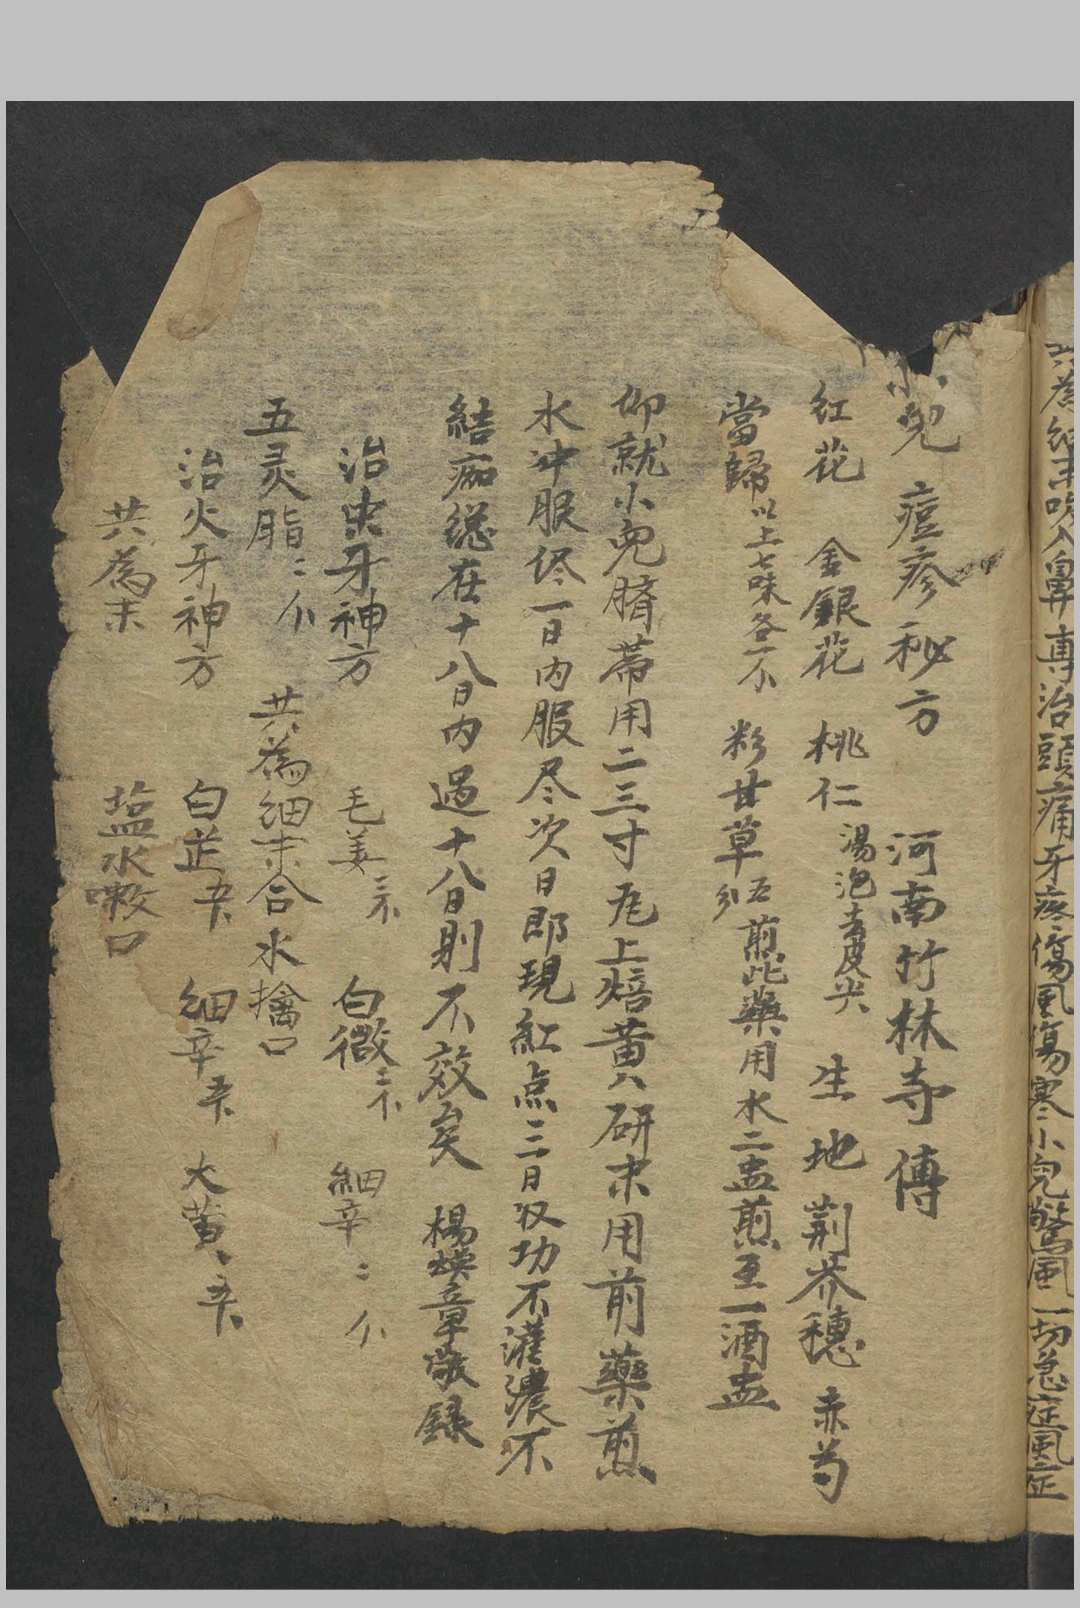 共為細末吹入鼻專治頭痛牙疼傷風傷寒小兒驚風一切急症風症
小兒痘疹秘方 河南竹林寺傳
紅花 金銀花 桃仁 湯泡去皮尖 生地 荆芥穗 赤芍
當歸 以上七味各一 粉甘草 五 煎此藥用水二盅煎至一酒盅
卬就小兒臍蒂用二三寸瓦上焙黄研末用前藥煎
水冲服侭一日内服尽次日即現紅点三日收功不灌濃不
結痂総在十八日内過十八日則不效矣 楊焕章敬録
治虫牙神方 毛姜 白微 細辛
五灵脂 共為細末合水擒口
治火牙神方 白芷 細辛 大黄
共為末 塩水嗽口